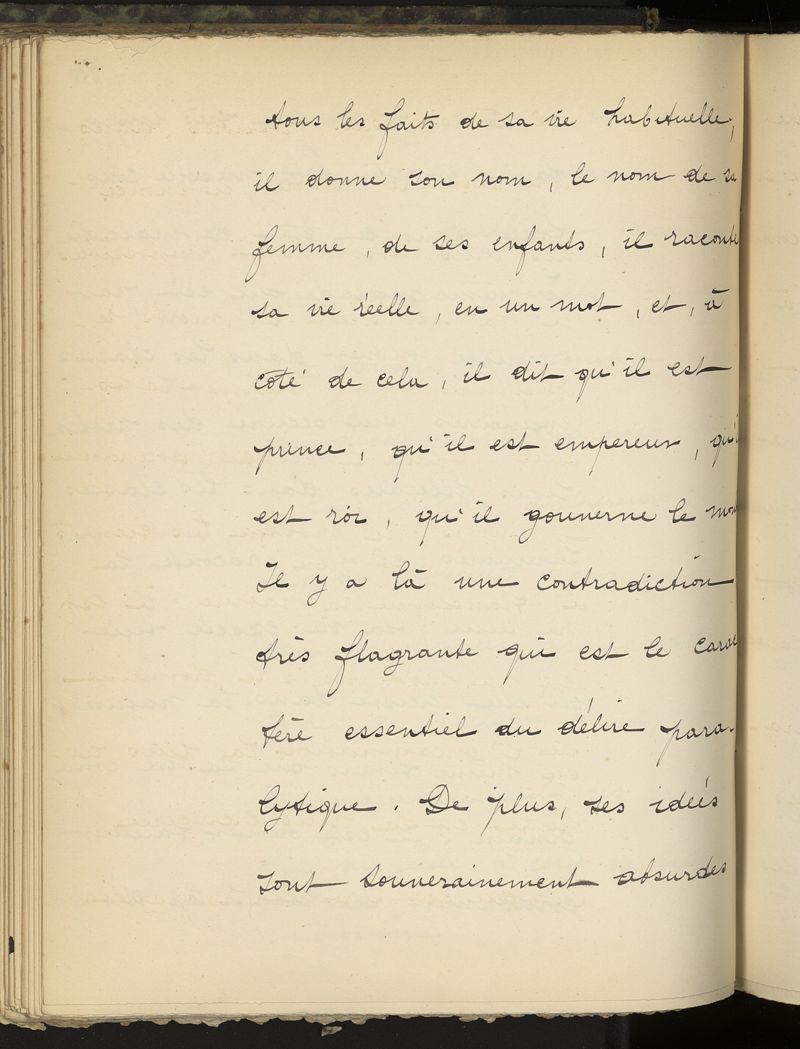 tous les faits de sa vie habituelle,
il donne son nom, le nom de sa
femme, de ses enfants, il raconte
sa vie réelle, en un mot, et, à
côté de cela, il dit qu'il est
prince, qu'il est empereur, qu'i
est roi, qu'il gouverne le mon
Il y a là une contradiction
très flagrante qui est le carac
tère essentiel du délire para-
lytique. De plus, ses idées
sont souverainement absurdes